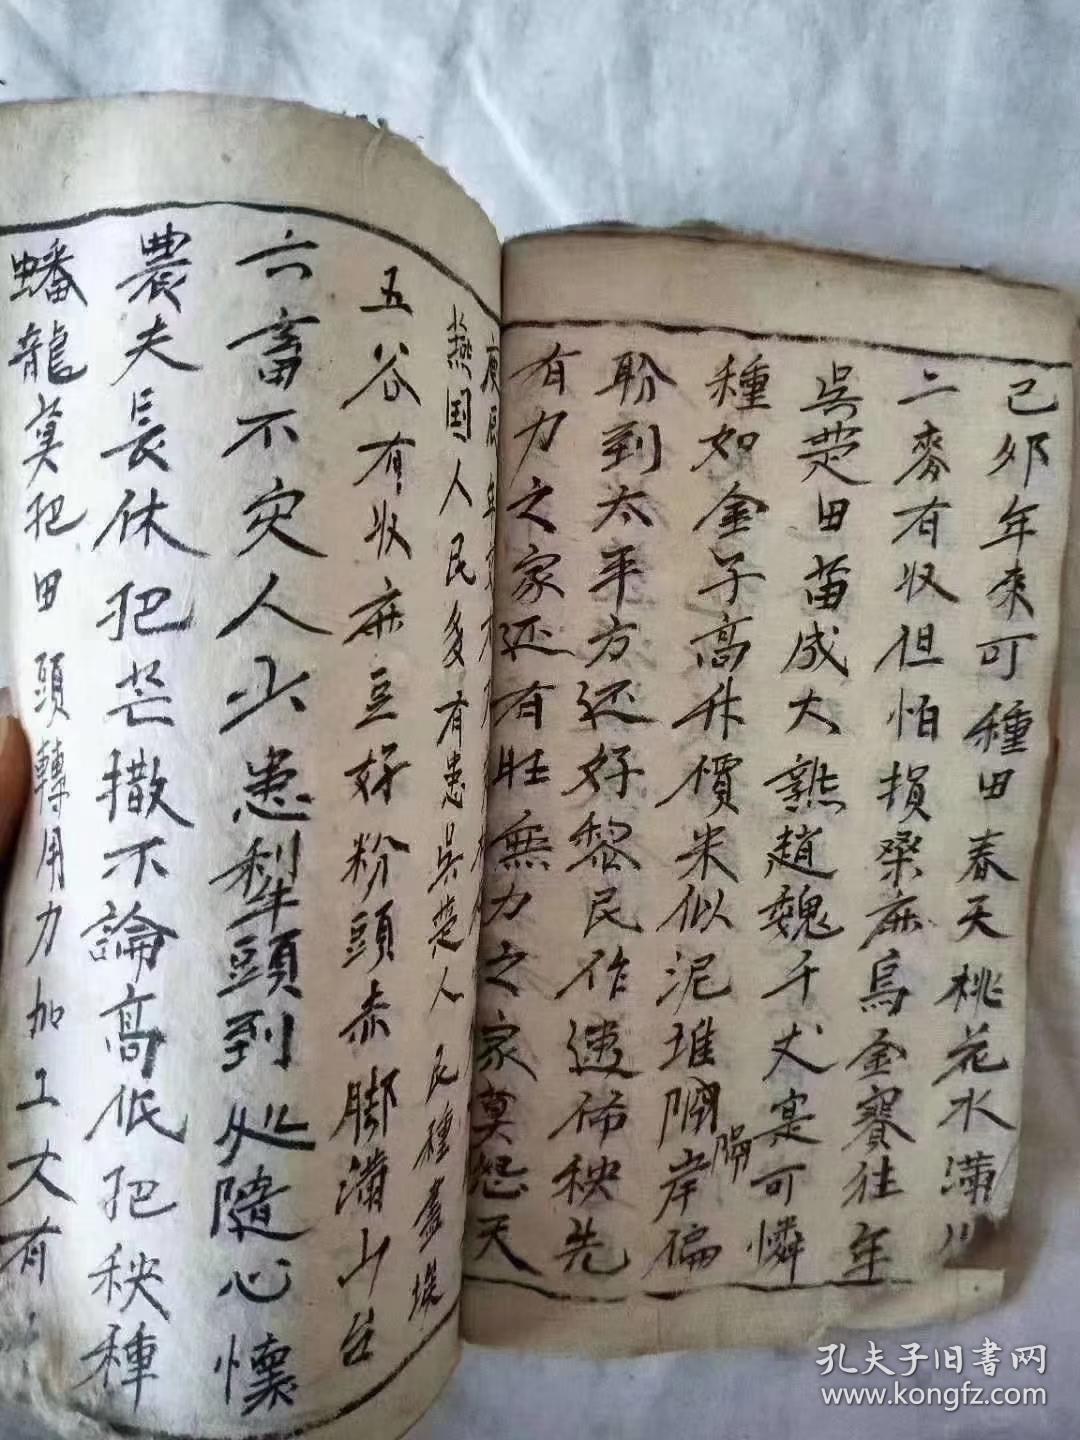 己卯年來可種田春天桃花水满
二麥有収但怕損桑麻烏金賽往年
吳楚田苗成大熟趙魏千丈寔可憐
種如金子高升價米似泥堆隔岸偏
隔
盼到太平方还好黎民作速佈秧先
有力之家还有旺無力之家莫怨天
庚辰年
燕国人民多有患吳楚人民種盡堆
五谷有収麻豆好粉頭赤脚满山台
六畜不灾人少患犁頭到処隨心懷
農夫長休把芒撒不論高低把秧種
蟠龍莫把田頭轉用力加工大有
孔夫子旧書网
www.kongfz.com